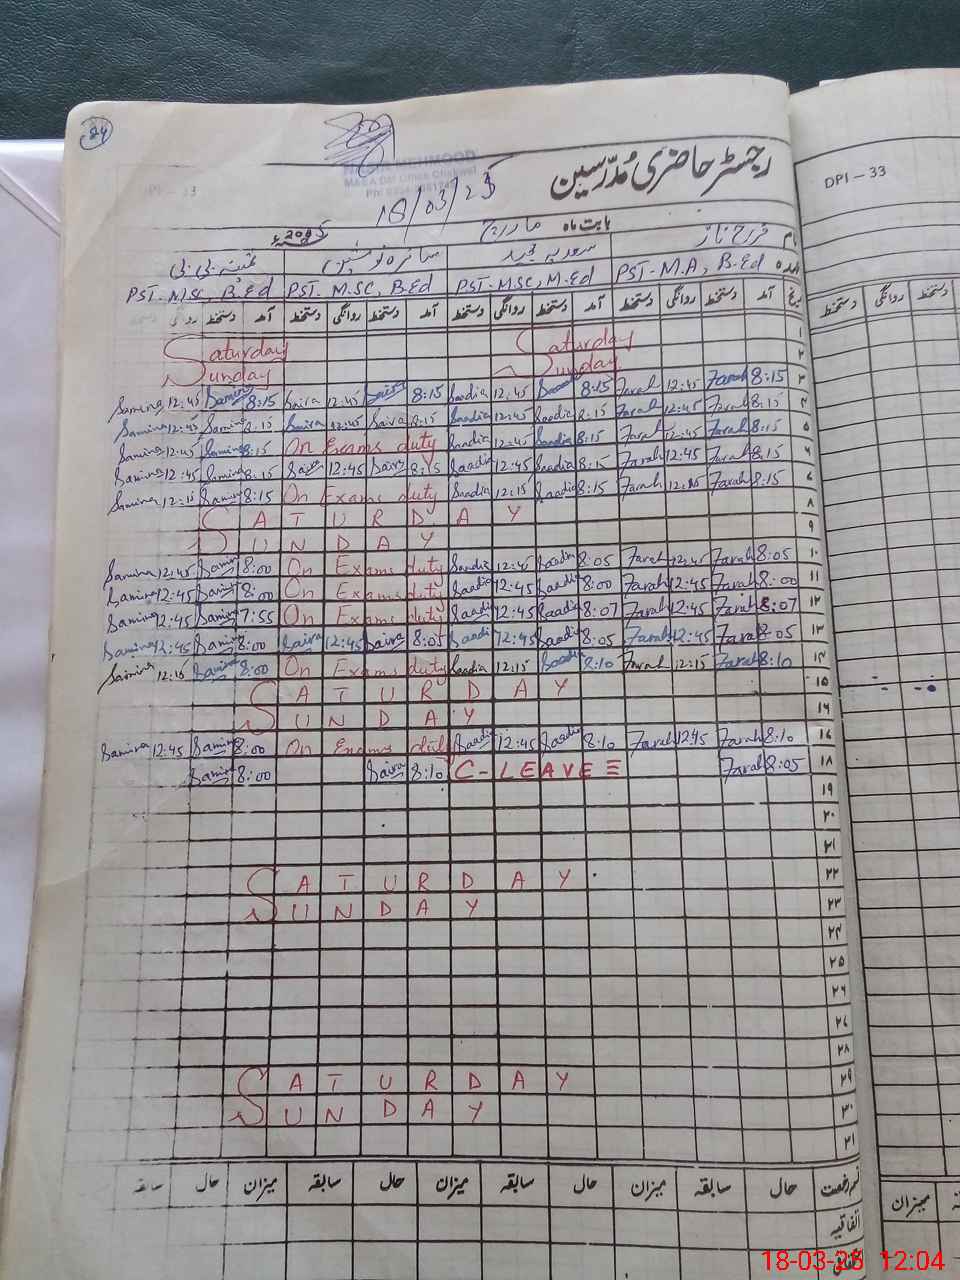 24
MEHMOOD
DPI - 33
رجسٹر حاضری مُدرّسین
DPI - 33
18/03/25
بابت ماہ مارچ 2025ء
نام فرح ناز سعدیہ سائرہ نوشین ثمینہ بی بی
عہدہ PST-M.A, B.Ed PST-M.SC, M.Ed PST-M.SC, B.Ed PST-M.SC, B.Ed
تاریخ آمد دستخط روانگی دستخط آمد دستخط روانگی دستخط آمد دستخط روانگی دستخط آمد دستخط
دستخط روانگی دستخط
Saturday Saturday ۱
Sunday Sunday ۲
Samina 12:45 Samina 8:15 Saira 12:45 Saira 8:15 Saadia 12:45 Saadia 8:15 Farah 12:45 Farah 8:15 ۳
Samina 12:45 Samina 8:15 Saira 12:45 Saira 8:15 Saadia 12:45 Saadia 8:15 Farah 12:45 Farah 8:15 ۴
Samina 12:45 Samina 8:15 On Exams duty Saadia 12:45 Saadia 8:15 Farah 12:45 Farah 8:15 ۵
Samina 12:45 Samina 8:15 Saira 12:45 Saira 8:15 Saadia 12:45 Saadia 8:15 Farah 12:45 Farah 8:15 ۶
Samina 12:15 Samina 8:15 On Exams duty Saadia 12:15 Saadia 8:15 Farah 12:15 Farah 8:15 ۷
SATURDAY ۸
SUNDAY ۹
Samina 12:45 Samina 8:00 On Exams duty Saadia 12:45 Saadia 8:05 Farah 12:45 Farah 8:05 ۱۰
Samina 12:45 Samina 8:00 On Exams duty Saadia 12:45 Saadia 8:00 Farah 12:45 Farah 8:00 ۱۱
Samina 12:45 Samina 7:55 On Exams duty Saadia 12:45 Saadia 8:07 Farah 12:45 Farah 8:07 ۱۲
Samina 12:45 Samina 8:00 Saira 12:45 Saira 8:05 Saadia 12:45 Saadia 8:05 Farah 12:45 Farah 8:05 ۱۳
Samina 12:15 Samina 8:00 On Exams duty Saadia 12:15 Saadia 8:10 Farah 12:15 Farah 8:10 ۱۴
SATURDAY ۱۵
SUNDAY ۱۶
Samina 12:45 Samina 8:00 On Exams duty Saadia 12:45 Saadia 8:10 Farah 12:45 Farah 8:10 ۱۷
Samina 8:00 Saira 8:10 C-LEAVE Farah 8:05 ۱۸
۱۹
۲۰
۲۱
SATURDAY ۲۲
SUNDAY ۲۳
۲۴
۲۵
۲۶
۲۷
۲۸
SATURDAY ۲۹
SUNDAY ۳۰
۳۱
حال سابقہ میزان حال سابقہ میزان حال سابقہ میزان حال سابقہ
میزان
اتفاقیہ
18-03-25 12:04